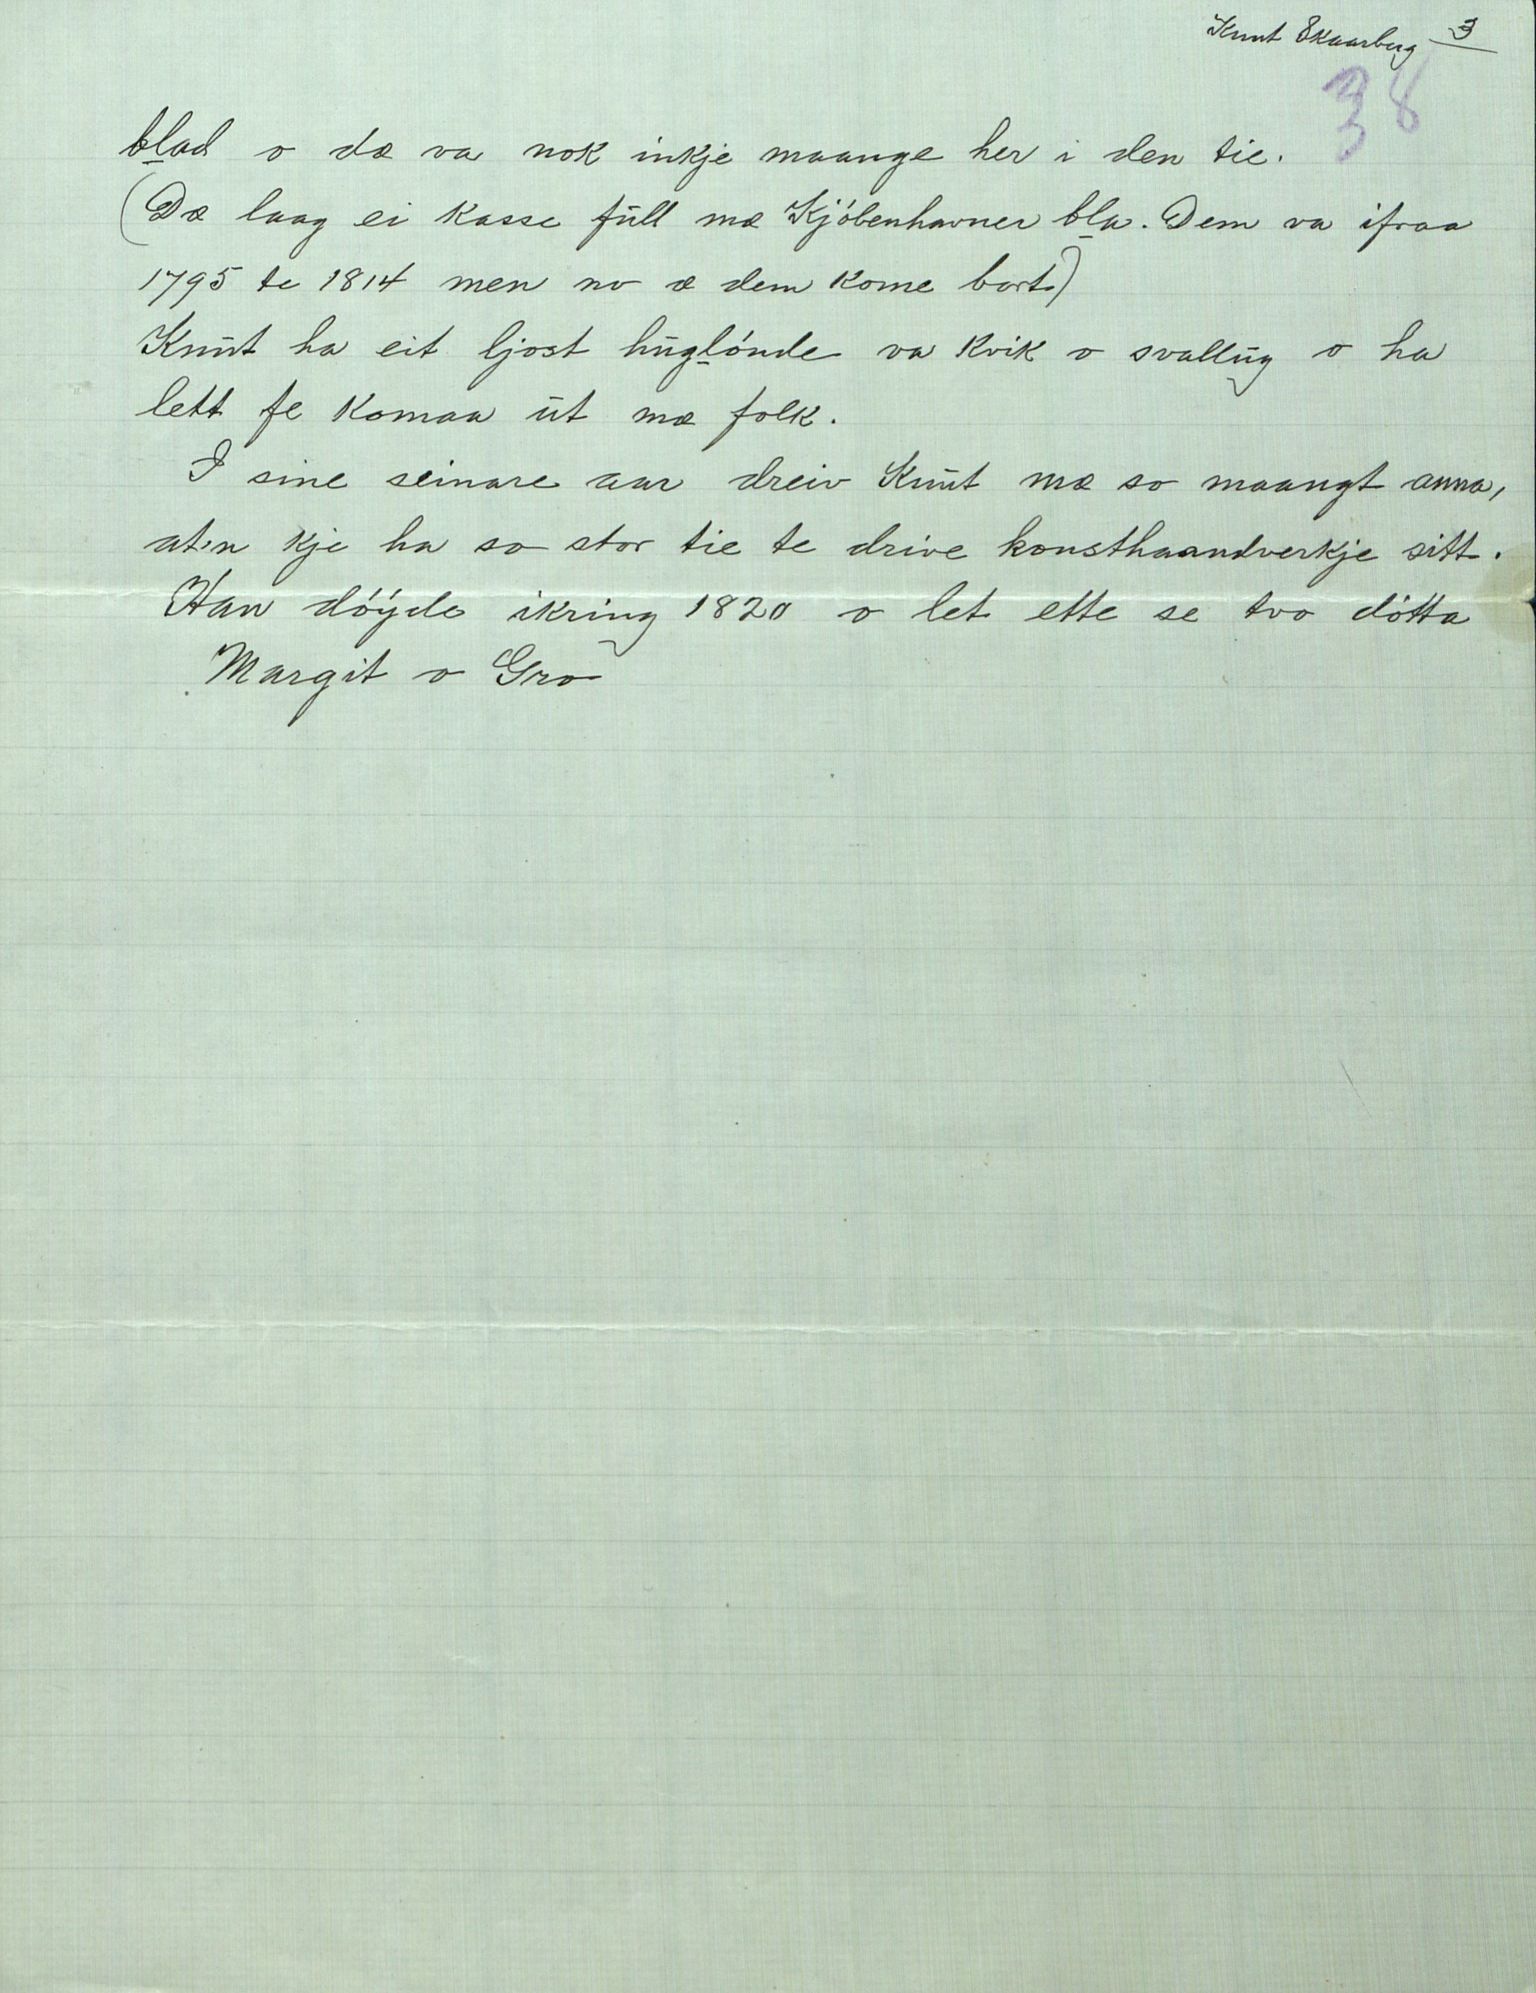 Knut Skaarberg 3
38
blad o dæ va nok inkje maange her i den tie.
(Dæ laag ei kasse full mæ Kjóbenhavner bla. Dem va ifraa
1795 te 1814 men no æ dem kome bort)
Knut ha eit ljost huglónde va kvik o svallug o ha
lett fe komaa ut mæ folk.
I sine seinare aar dreiv Knut mæ so maangt anna,
at'n kje ha so stor tie te drive konsthaandverkje sitt.
Han dóyde ikring 1820 o let ette se tvo dótta
Margit o Gro